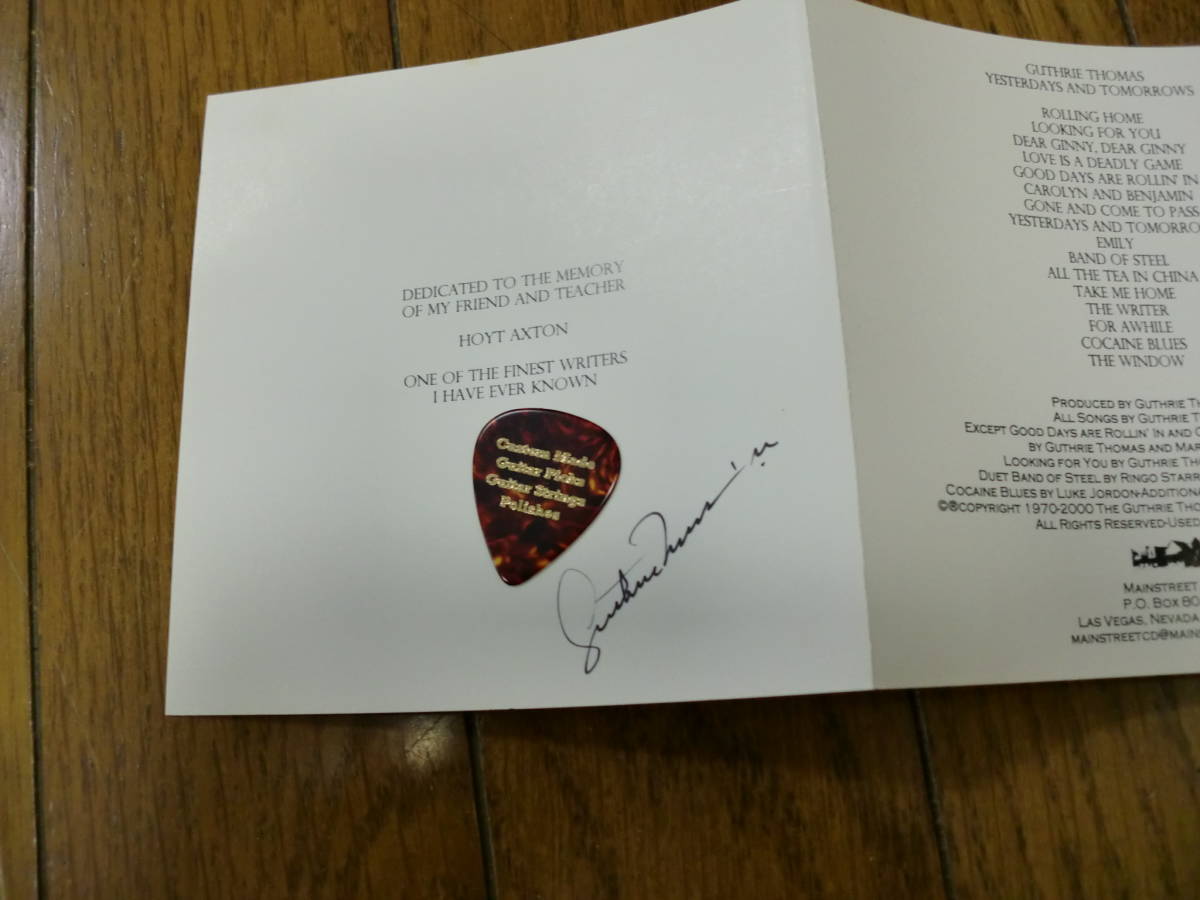 DEDICATED TO THE MEMORY
OF MY FRIEND AND TEACHER
HOYT AXTON
ONE OF THE FINEST WRITERS
I HAVE EVER KNOWN
Custom Made
Guitar Picks
Guitar Strings
Polishes
Guthrie Thomas
GUTHRIE THOMAS
YESTERDAYS AND TOMORROWS
ROLLING HOME
LOOKING FOR YOU
DEAR GINNY, DEAR GINNY
LOVE IS A DEADLY GAME
GOOD DAYS ARE ROLLIN' IN
CAROLYN AND BENJAMIN
GONE AND COME TO PASS
YESTERDAYS AND TOMORRO
EMILY
BAND OF STEEL
ALL THE TEA IN CHINA
TAKE ME HOME
THE WRITER
FOR AWHILE
COCAINE BLUES
THE WINDOW
PRODUCED BY GUTHRIE TH
ALL SONGS BY GUTHRIE T
EXCEPT GOOD DAYS ARE ROLLIN' IN AND
BY GUTHRIE THOMAS AND MAR
LOOKING FOR YOU BY GUTHRIE THO
DUET BAND OF STEEL BY RINGO STARR
COCAINE BLUES BY LUKE JORDON-ADDITIONAL
©®COPYRIGHT 1970-2000 THE GUTHRIE THO
ALL RIGHTS RESERVED-USED
MAINSTREET
P.O. BOX 80
LAS VEGAS, NEVADA
MAINSTREETCD@MAIN